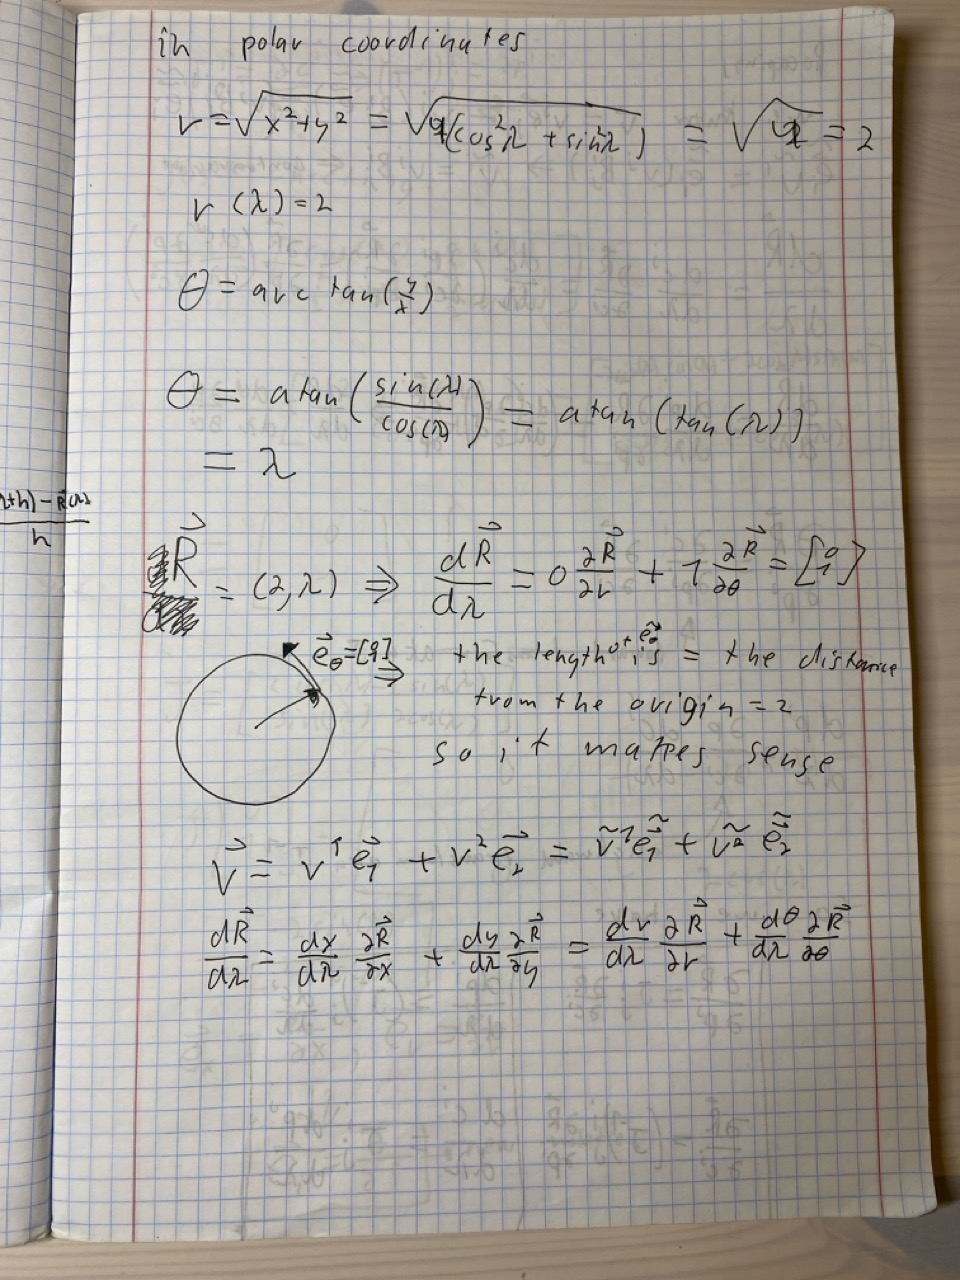 in polar coordinates
r = √(x²+y²) = √(4(cos²λ + sin²λ)) = √4 = 2
r(λ) = 2
θ = arc tan(y/x)
θ = atan(sin(λ)/cos(λ)) = atan(tan(λ))
= λ
λ+h) − R⃗(λ)
h
R⃗ = (2, λ) ⇒ dR⃗/dλ = 0 ∂R⃗/∂r + 1 ∂R⃗/∂θ = [0 1]
e⃗θ = [0 1] ⇒ the length of e⃗θ is = the distance
from the origin = 2
so it makes sense
v⃗ = v¹ e⃗₁ + v² e⃗₂ = ṽ¹ ẽ⃗₁ + ṽ² ẽ⃗₂
dR⃗/dλ = dx/dλ ∂R⃗/∂x + dy/dλ ∂R⃗/∂y = dr/dλ ∂R⃗/∂r + dθ/dλ ∂R⃗/∂θ